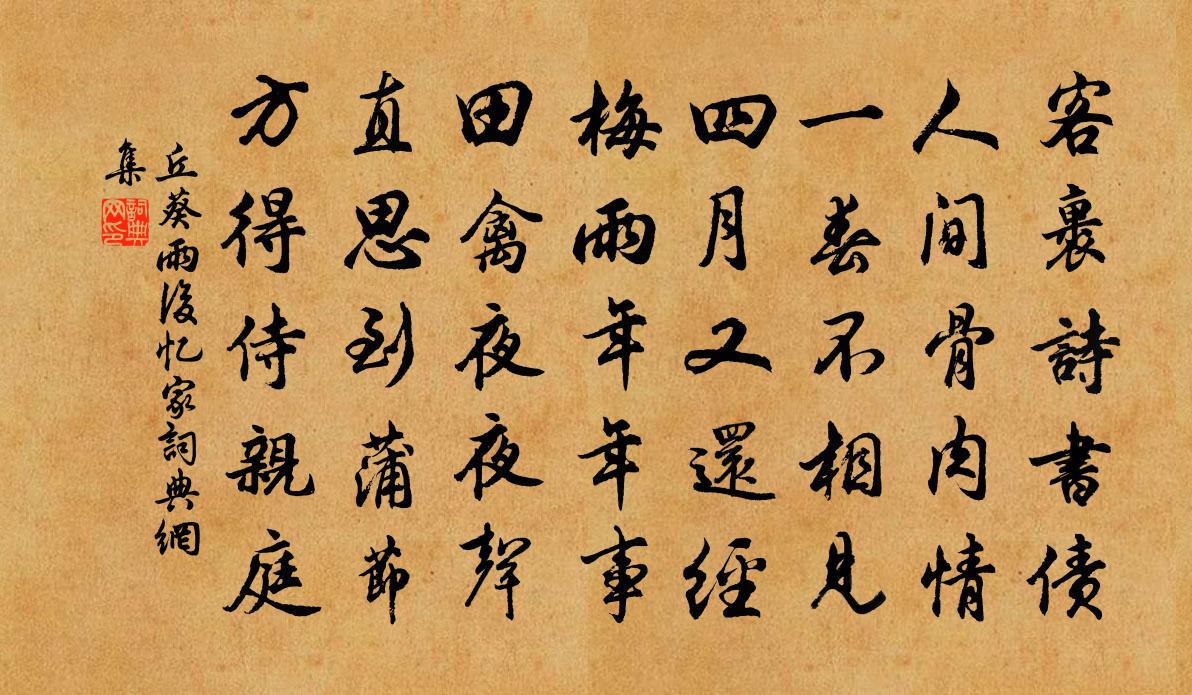 客裏詩書債
人間骨肉情
一春不相見
四月又還經
梅雨年年事
田禽夜夜聲
直思到蒲節
方得侍親庭
丘葵雨後忆家詞典網
集
詞典網印